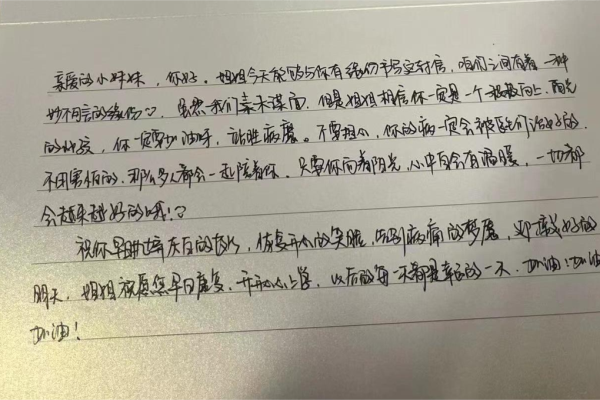 亲爱的小妹妹，你好。姐姐今天能够与你有缘份书写这封信，咱们之间有着一种
妙不可言的缘份。虽然我们素未谋面，但是姐姐相信你一定是一个积极向上，阳光
的女孩，你一定要加油呀，战胜病魔。不要担心，你的病一定会被医生们治好的，
不用害怕的，那么多人都会一起陪着你，只要你向着阳光，心中自会有温暖，一切都
会越来越好的哦！
祝你早日，恢复开心的笑脸，告别病痛的梦魇，迎接美好的
明天，姐姐祝愿您早日康复，开开心心上学，以后的每一天都是幸福的一天，加油！加油！
加油！